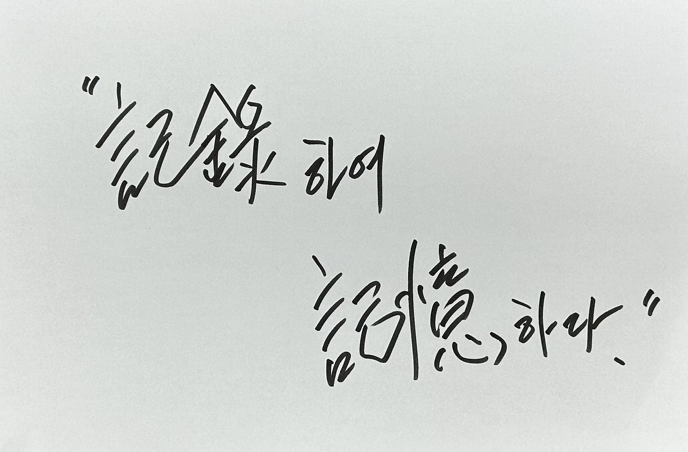 "記錄하여
記憶하라."